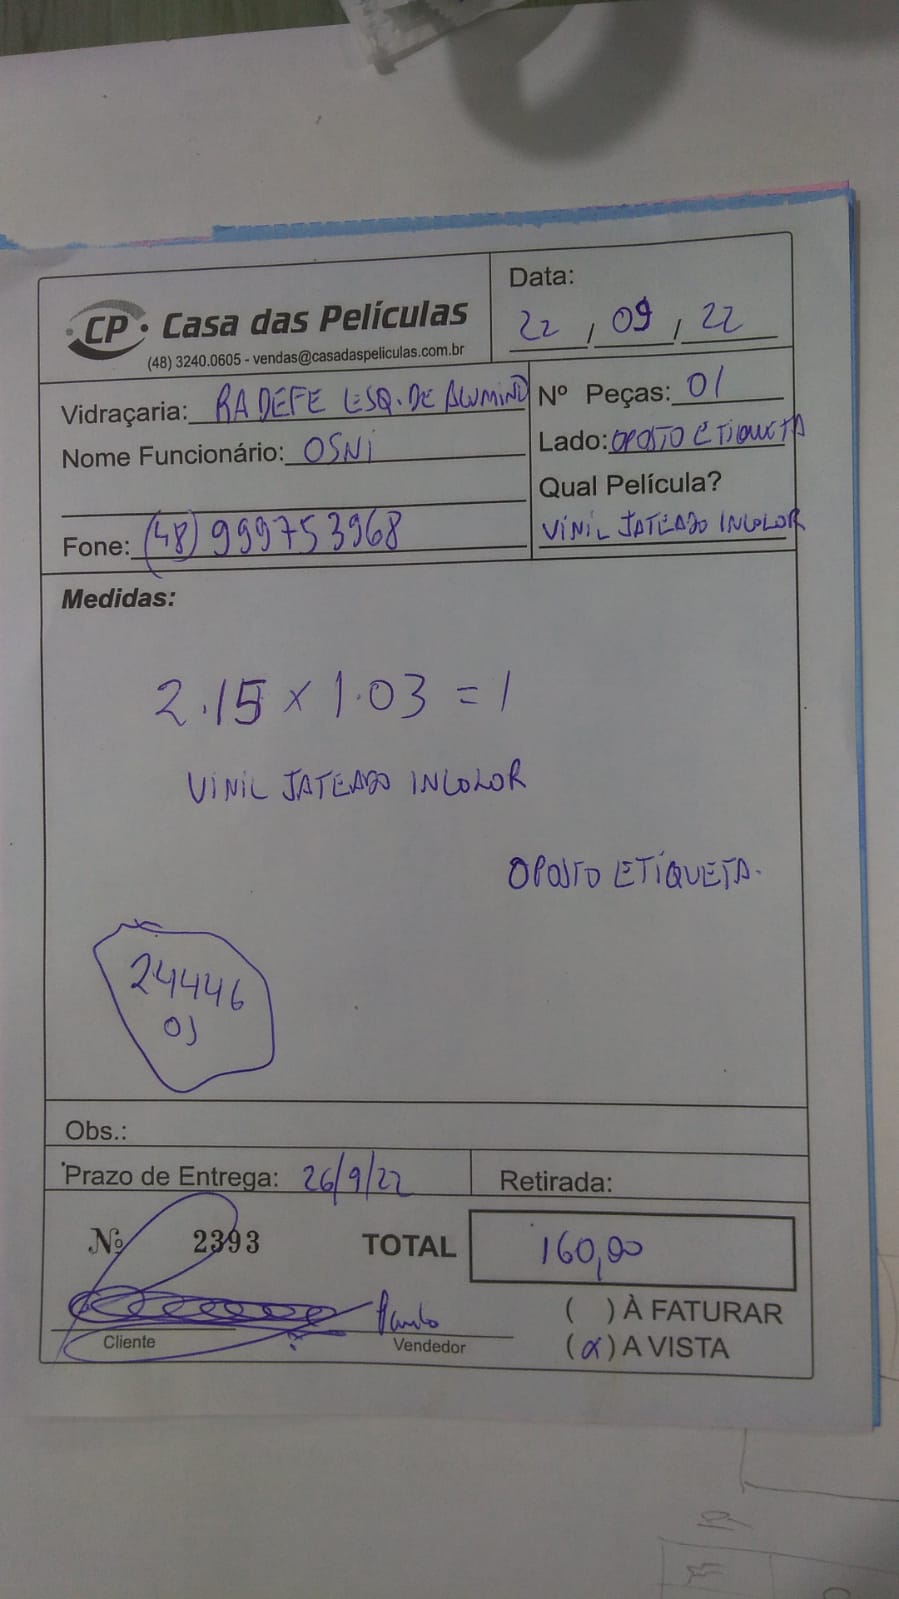 CP Casa das Películas
(48) 3240.0605 - vendas@casadaspeliculas.com.br
Data:
22 / 09 / 22
Vidraçaria: RADEFE ESQ. DE ALUMINIO
Nome Funcionário: OSNI
Fone: (48) 999753968
Nº Peças: 01
Lado: OPOSTO ETIQUETA
Qual Película?
VINIL JATEADO INCOLOR
Medidas:
2.15 x 1.03 = 1
VINIL JATEADO INCOLOR
OPOSTO ETIQUETA.
24446
Obs.:
Prazo de Entrega: 26/9/22
Retirada:
Nº 2393
TOTAL 160,00
( ) À FATURAR
(x) A VISTA
Cliente
Vendedor